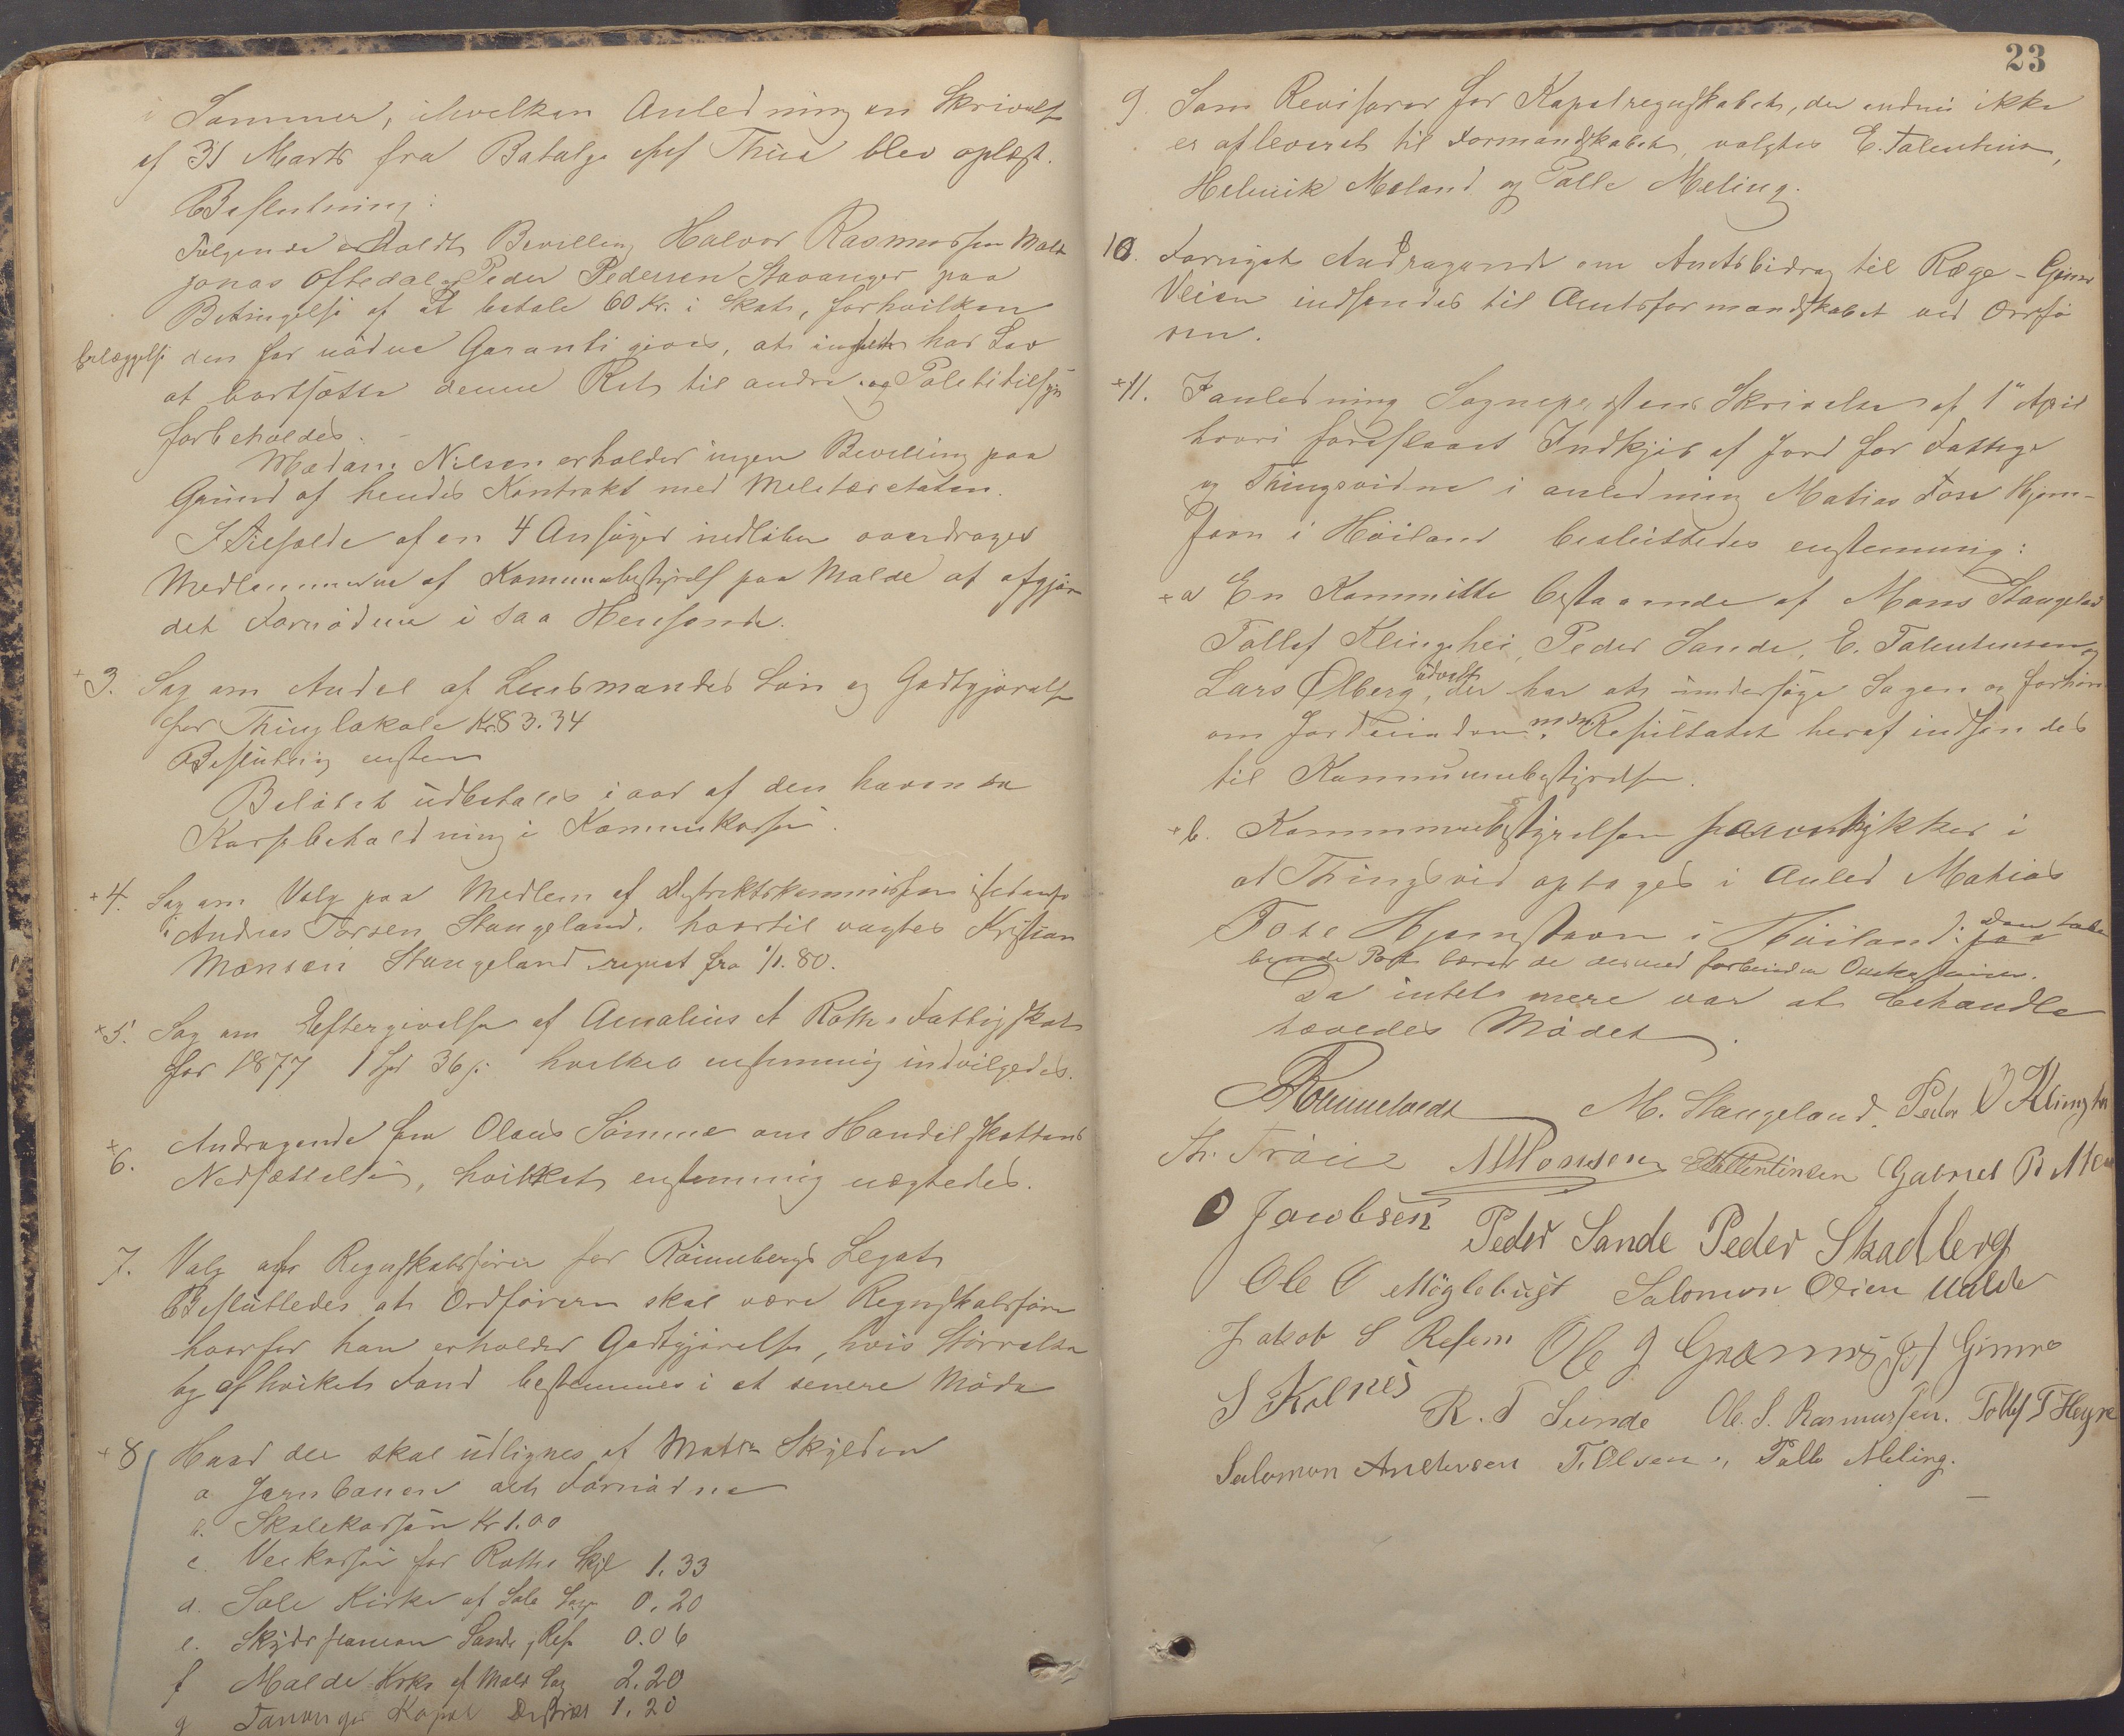 i Sommer, i hvilken Anledning en Skrivelse
af 31 Marts fra Bataljechef Thue blev oplæst.
Beslutning:
Følgende erholdt Bevilling Halvor Rasmussen Malde
Jonas Oftedal og Peder Pedersen Stavanger paa
Betingelse af at betale 60 Kr. i Skat, forhvilken
erlæggelse den fornødne Garanti gives, at ingen har Lov
at bortsætte denne Ret til andre og Polititilsyn
forbeholdes.
Madam Nilsen erholder ingen Bevilling paa
Grund af hendes Kontrakt med Militæretaten.
I Tilfælde af en 4 Ansøger indløber overdrages
Medlemmerne af Komunebestyrelse paa Malde at afgjøre
det Fornødne i saa Henseende.
+3. Sag om Andel af Lensmandes Løn og Godtgjørelse
for Thinglokale Kr 83.34
Beslutning enstem
Beløbet udbetales i aar af den havende
Kassebeholdning i Kommunekassen.
+4. Sag om Valg paa Medlem af Distriktskommissionen istedenfor
Andreas Torsen Stangeland, hvortil valgtes Kristian
Monsen Stangeland regnet fra 1/1. 80.
+5. Sag om Eftergivelse af Amalius A Roth's Fattigskat
for 1877 1 Spd 36 s. hvilket enstemmig indvilgedes.
+6. Andragende fra Olaus Sømme om Handelskattens
Nedsættelse, hvilket enstemmig nægtedes.
7. Valg af Regnskabsfører for Rønnebergs Legat
Besluttedes at Ordføreren skal være Regnskabsfører
hvorfor han erholder Godtgjørelse, hvis Størrelse
og af hvilket Fond bestemmes i et senere Møde
+8 Hvad der skal udlignes af Matr Skylden
a Jernbanen det Fornødne
b. Skolekassen Kr 1.00
c. Veikassen for Rotts Skyl 1.33
d. Sole Kirke af Sole Sogn 0.20
e. Skydsstasion Sande, Ref 0.06
f Malde Kirke af Mald Sog 2.20
g Tananger Kapel Distrikt 1.20
23
9. Som Revisorer for Kapelregnskabet, der endnu ikke
er afleveret til Formandskabet, valgtes E. Talentinsen,
Helmik Meland og Palle Meling.
10. Fornyet Andragende om Amtsbidrag til Ræge - Gimre
Veien indsendes til Amtsformandskabet ved Ordfø
ren.
+11. I anledning Sognepræstens Skrivelse af 1ste April
hvori foreslaaes Indkjøb af Jord for Fattige
og Thingsvidne i anledning Matias Fose Hjem-
stavn i Høiland besluttedes enstemmig:
+a En Kommitte bestaaende af Mons Stangeland
Tollef Klingshei, Peder Sande, E. Talentinsen og
Lars Ølberg, udvalt der har at undersøge Sagen og forhøre
om Jordeiendom m. m. Resultatet heraf indsendes
til Kommunebestyrelsen.
+b. Kommunebestyrelsen samtykker i
at Thingsvid optages i Anled Matias
Fose Hjemstavn i Høiland: paa Den tabende
bende Part bærer de dermed forbundne Omkostninger.
Da intet mere var at behandle
hævedes Mødet.
M. Stangeland. Peder O Klingshei
Th. Trøie A Monsen E Tallentinsen Gabriel B
O Jacobsen Peder Sande Peder Skadberg
Ole O Møglebust Salomon Olsen Malde
Jakob S Refem Ole J Grannes Gimre
S Kolnes R. T Sunde Ole. S. Rasmussen. Tollf T Heyre
Salomon Andersen T. Olsen., Palle Meling.